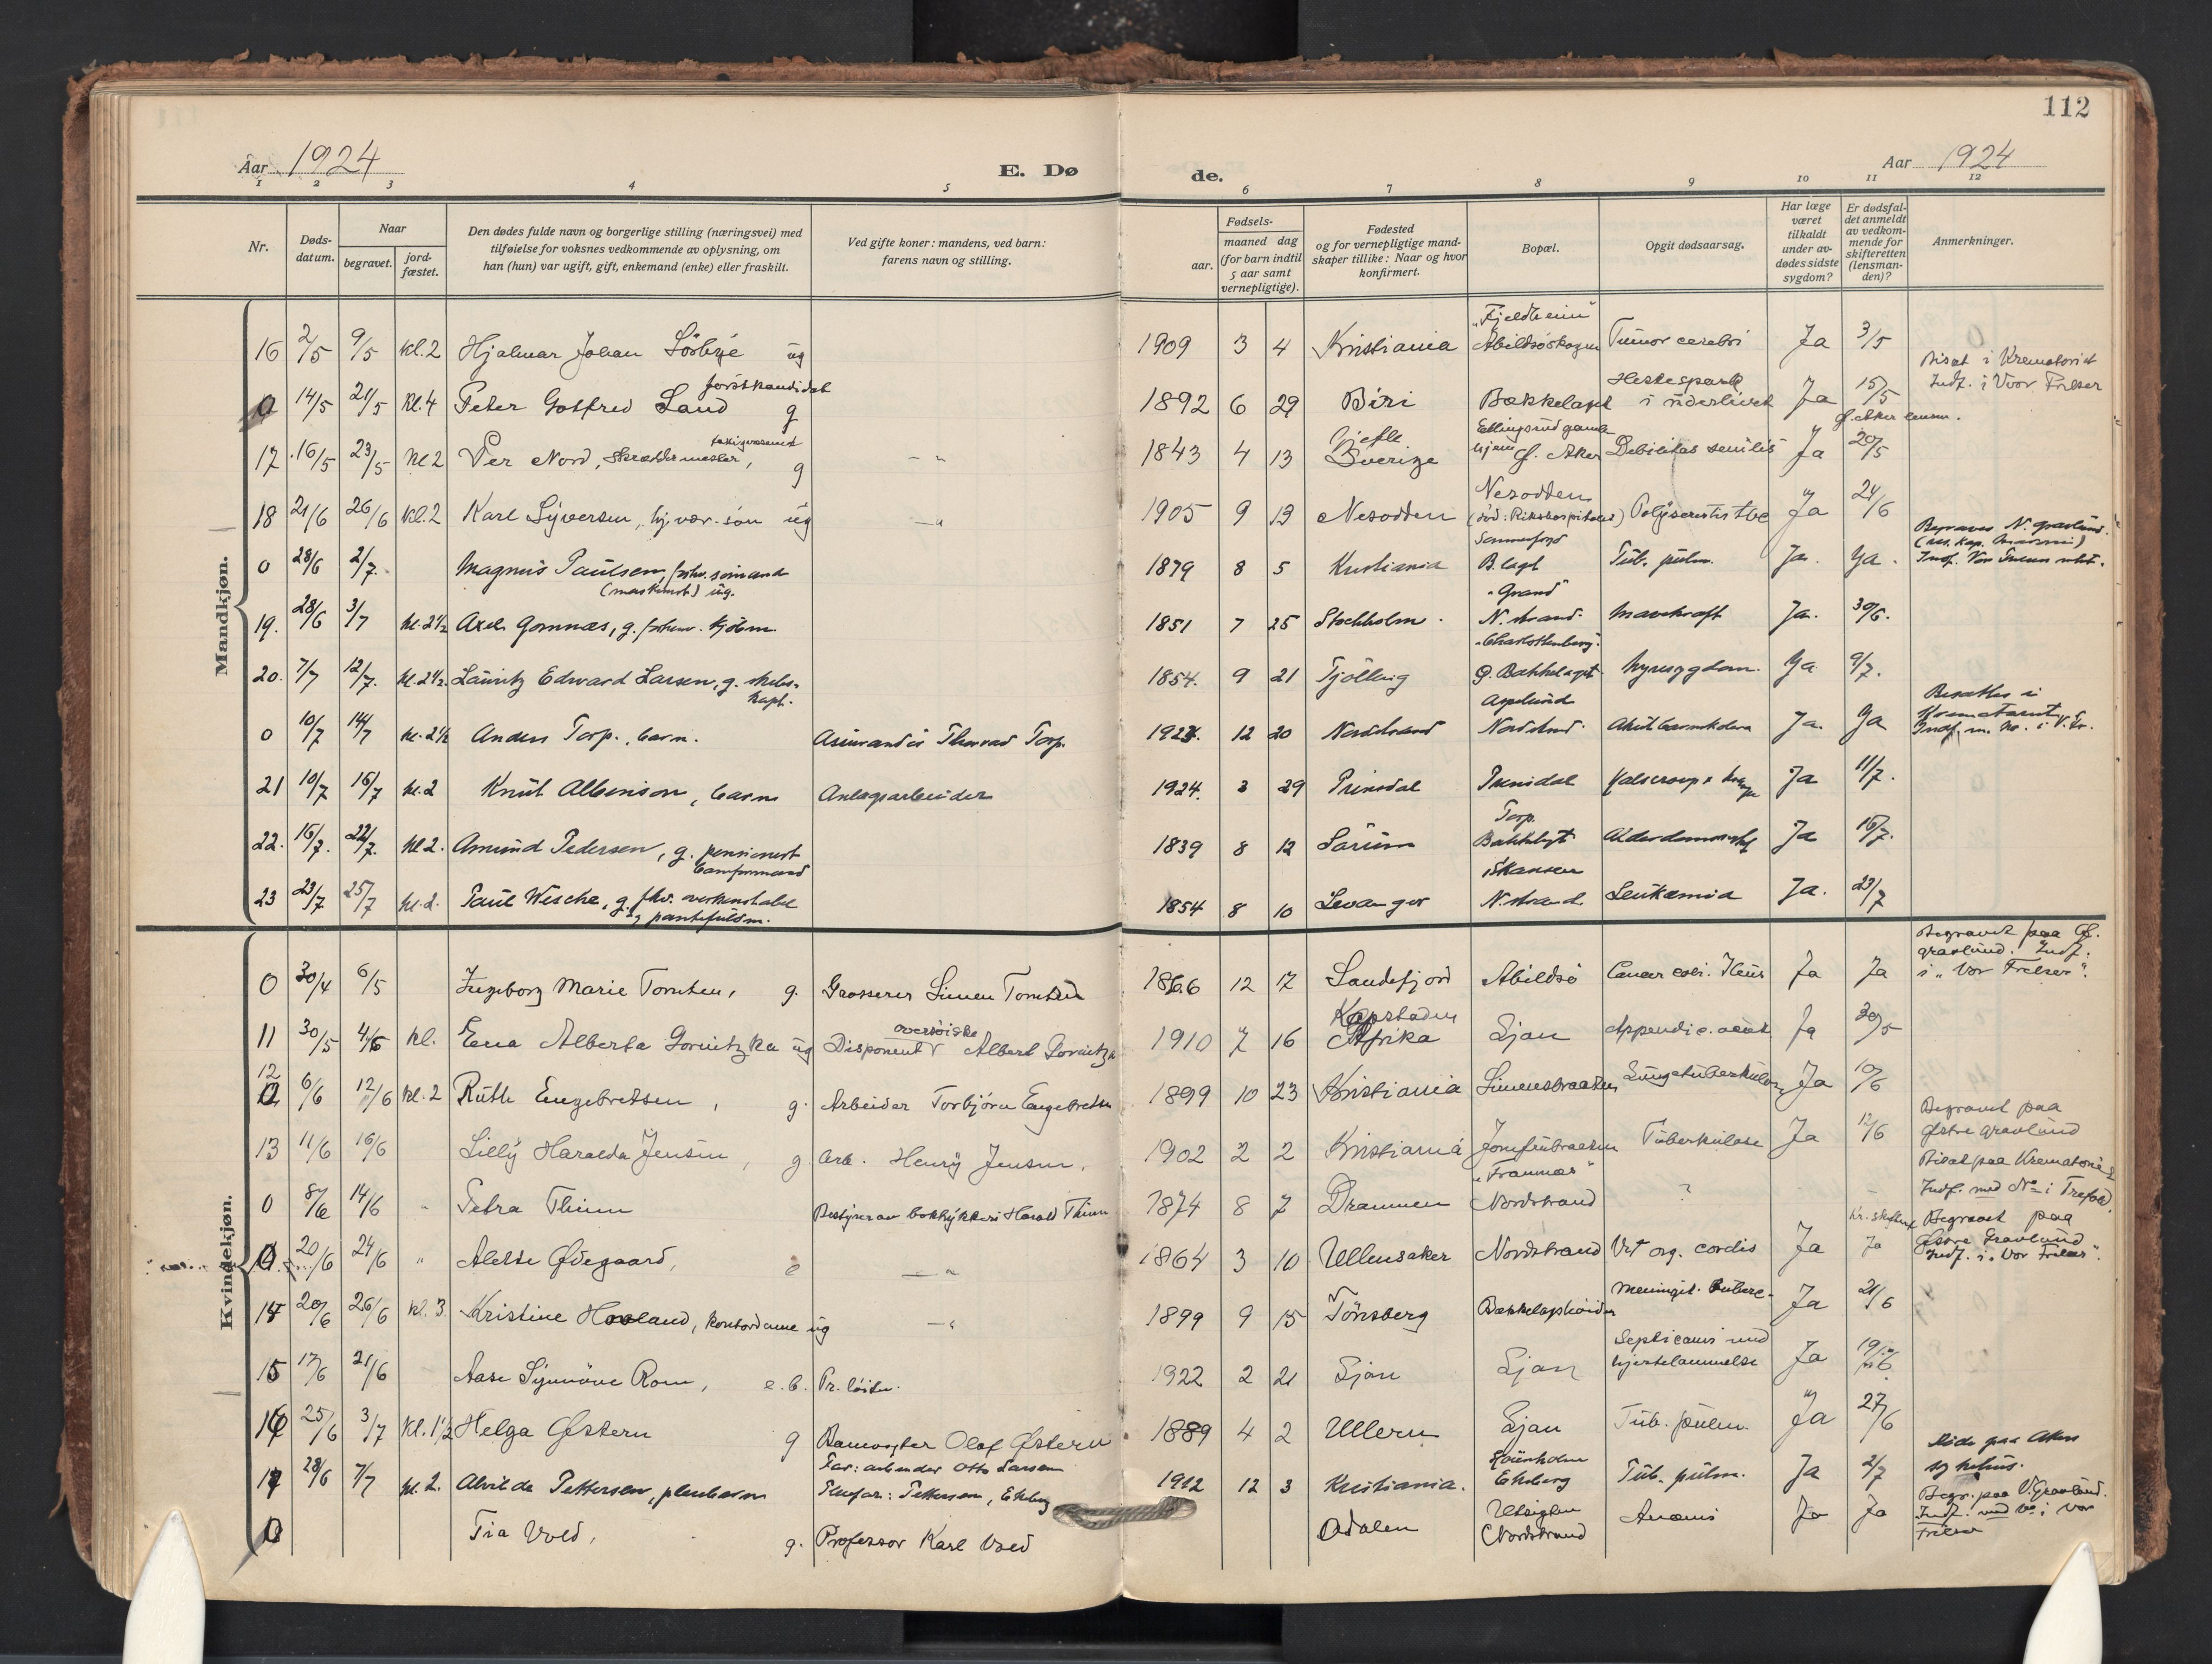 112
Aar 1924
E. Dø
de.
Aar 1924
1 2 3 4 5 6 7 8 9 10 11 12
Nr.
Døds-
datum.
Naar
begravet.
jord-
fæstet.
Den dødes fulde navn og borgerlige stilling (næringsvei) med
tilføielse for voksnes vedkommende av oplysning, om
han (hun) var ugift, gift, enkemand (enke) eller fraskilt.
Ved gifte koner: mandens, ved barn:
farens navn og stilling.
Fødsels-
aar.
maaned dag
(for barn indtil
5 aar samt
vernepligtige).
Fødested
og for vernepligtige mand-
skaper tillike: Naar og hvor
konfirmert.
Bopæl.
Opgit dødsaarsag.
Har læge
været
tilkaldt
under av-
dødes sidste
sygdom?
Er dødsfal-
det anmeldt
av vedkom-
mende for
skifteretten
(lensman-
den)?
Anmerkninger.
Mandkjøn.
16 2/5 9/5 kl. 2 Hjalmar Johan Sørbye ug 1909 3 4 Kristiania "Fjeldheim" Abildsøskogen Tumor cerebri Ja 3/5
0 14/5 21/5 kl. 4 Peter Gotfred Land forstkandidat g 1892 6 29 Biri Bækkelaget Hestespark i underlivet Ja 15/5 Bisat i Krematoriet Indf. i Vor Frelser
17 16/5 23/5 kl 2 Per Nord, skræddermester, g — " 1843 4 13 Gjefle Sverige Ellingsrud gamlehjem Ø. Aker Debilitas senilis Ja 20/5 Ø. Aker lensm.
18 21/6 26/6 kl. 2 Karl Syversen, ug — " 1905 9 13 Nesodden Nesodden (død: Rikshospitalet) Polyserositis tbc Ja 24/6
0 28/6 2/7 Magnus Paulsen, fhv. sømand (maskinist) ug. 1879 8 5 Kristiania B.laget Tub. pulm. Ja. Ja. Begraves N. gravlund. Indf. Vor Frelser
19. 28/6 3/7 kl. 2½ Axel Gomnæs, g. kjøbm. 1851 7 25 Stockholm. "Grand" N.strand. Mavekræft Ja. 30/6.
20. 7/7 12/7. kl. 2½. Lauritz Edward Larsen, g. skibskapt. 1854. 9 21 Tjølling "Charlottenberg". Ø. Bækkelaget Nyresygdom. Ja 9/7.
0 10/7 14/7 kl. 2½ Anders Torp., barn. Thorvad Torp. 1923. 12 20 Nordstrand Asplund Nordstrand. Ja. Ja Bisattes i Krematoriet
21 10/7 16/7 kl. 2 Knut Albinson, barn Anlægsarbeider 1924. 3 29 Prinsdal Prinsdal Ja 11/7.
22. 16/7. 22/7. kl 2. Amund Pedersen, g. pensioneret banformand 1839 8 12 Sørum Torp. Bækkelaget Alderdomssvakh. Ja 16/7.
23 23/7 25/7 kl. 2. Paul Wesche, g. fhv. og pantefuldm. 1854 8 10 Levanger "Skansen N.strand. Leukæmia Ja. 23/7
Kvindekjøn.
0 30/4 6/5 Ingeborg Marie Tomten, g. Grosserer Simen Tomten 1866 12 17 Sandefjord Abildsø Cancer coli. Ileus Ja Ja Begravet paa Ø. gravlund. Indf. i "Vor Frelser".
11 30/5 4/6 kl. Ena Alberta Gornitzka ug Disponent oversøiske Albert Gornitzka 1910 7 16 Kapstaden Afrika Ljan Appendic. acut Ja 30/5
12 6/6 12/6 kl. 2 Ruth Engebretsen, g. Arbeider Torbjørn Engebretsen 1899 10 23 Kristiania Simensbraaten Lungetuberkulose Ja 10/6
13 11/6 16/6 Lilly Haralda Jensen, g Arb. Henry Jensen, 1902 2 2 Kristiania Jomfrubraaten Tuberkulose Ja 12/6 Begravet paa Østre gravlund
0 8/6 14/6 " Petra Thinn Bestyrer av boktrykkeri Harald Thinn 1874 8 7 Drammen "Framnæs" Nordstrand ? — — Bisat paa Krematoriet Indf. med No i Trefold.
0 20/6 24/6 " Alette Ødegaard, e — " 1864 3 10 Ullensaker Nordstrand Vit. org. cordis Ja Ja Begravet paa Østre Gravlund Indf. i "Vor Frelser".
14 20/6 26/6 kl. 3 Kristine Hovland, kontordame ug — " 1899 9 15 Tønsberg Bækkelagshøiden Meningit. tuberc. Ja 21/6
15 17/6 21/6 Aase Synnøve Rom, e.b. Pr. løitn. 1922 2 21 Ljan Ljan Septicæmi med hjertelammelse Ja 19/6
16 25/6 3/7 kl. 1½ Helga Østern g Banevogter Olaf Østern 1889 4 2 Ullern Ljan Tub. pulm. Ja 27/6
17 28/6 7/7 kl. 2. Alvilda Pettersen, pleiebarn Far: arbeider Otto Larsen Pleiefar: Pettersen, Ekeberg 1912 12 3 Kristiania. Ekeberg Tub. pulm. Ja 2/7 Døde paa Akers sykehus.
0 Tia Vold, g. Professor Karl Vold Ådalen Utsigten Nordstrand Anæmi Ja Ja Begr. paa V. Gravlund. Indf. med No i Vor Frelser